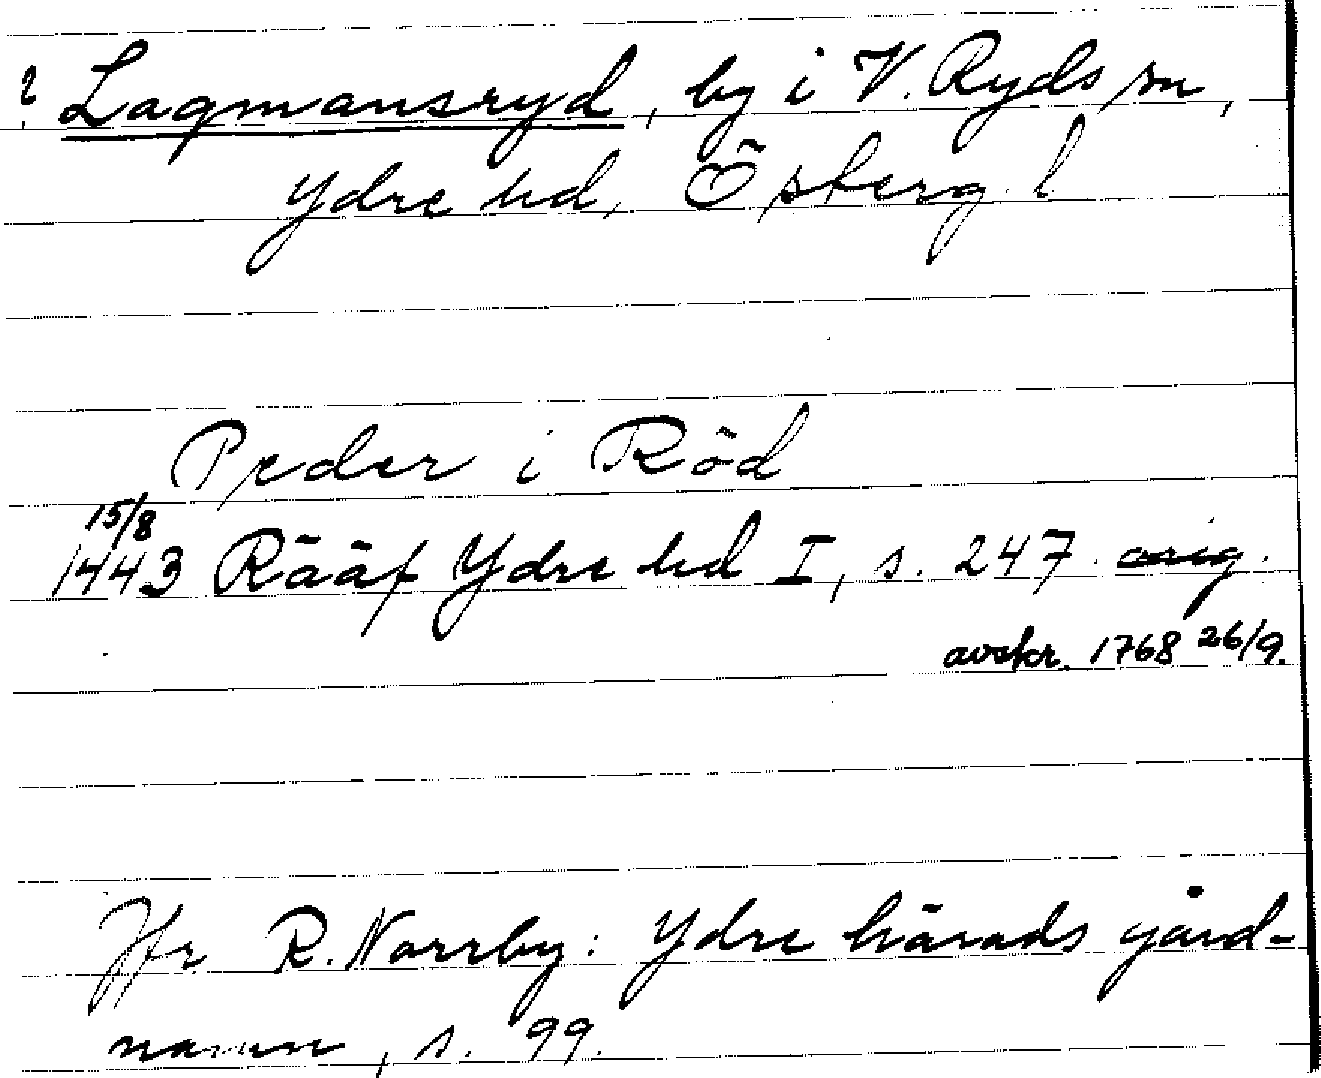 ? Lagmansryd, by i V. Ryds sn,
Ydre hd, Österg. l
Peder i Röd
15/8
1443 Rääf Ydre hd I, s. 247. orig.
avskr. 1768 26/9.
Jfr R. Norrby: Ydre härads gård-
namn, s. 99.